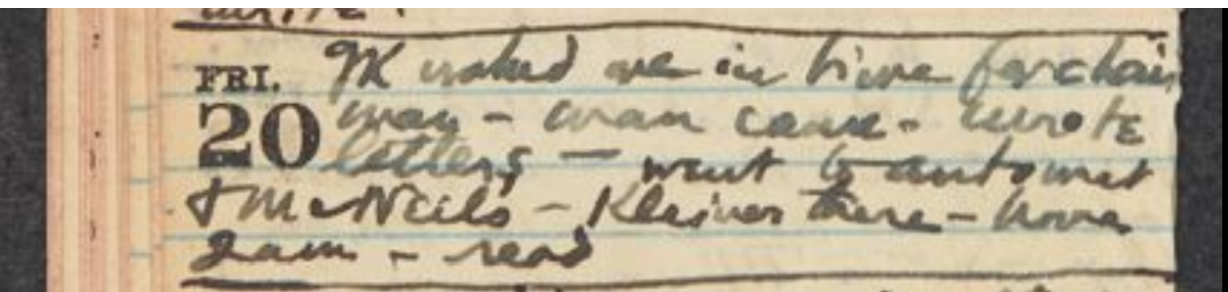 write.
FRI. MK waked me in time for chair
20 man - man came - wrote
letters - went to automat
+ McNeils - Kleiner there - home
2am - read